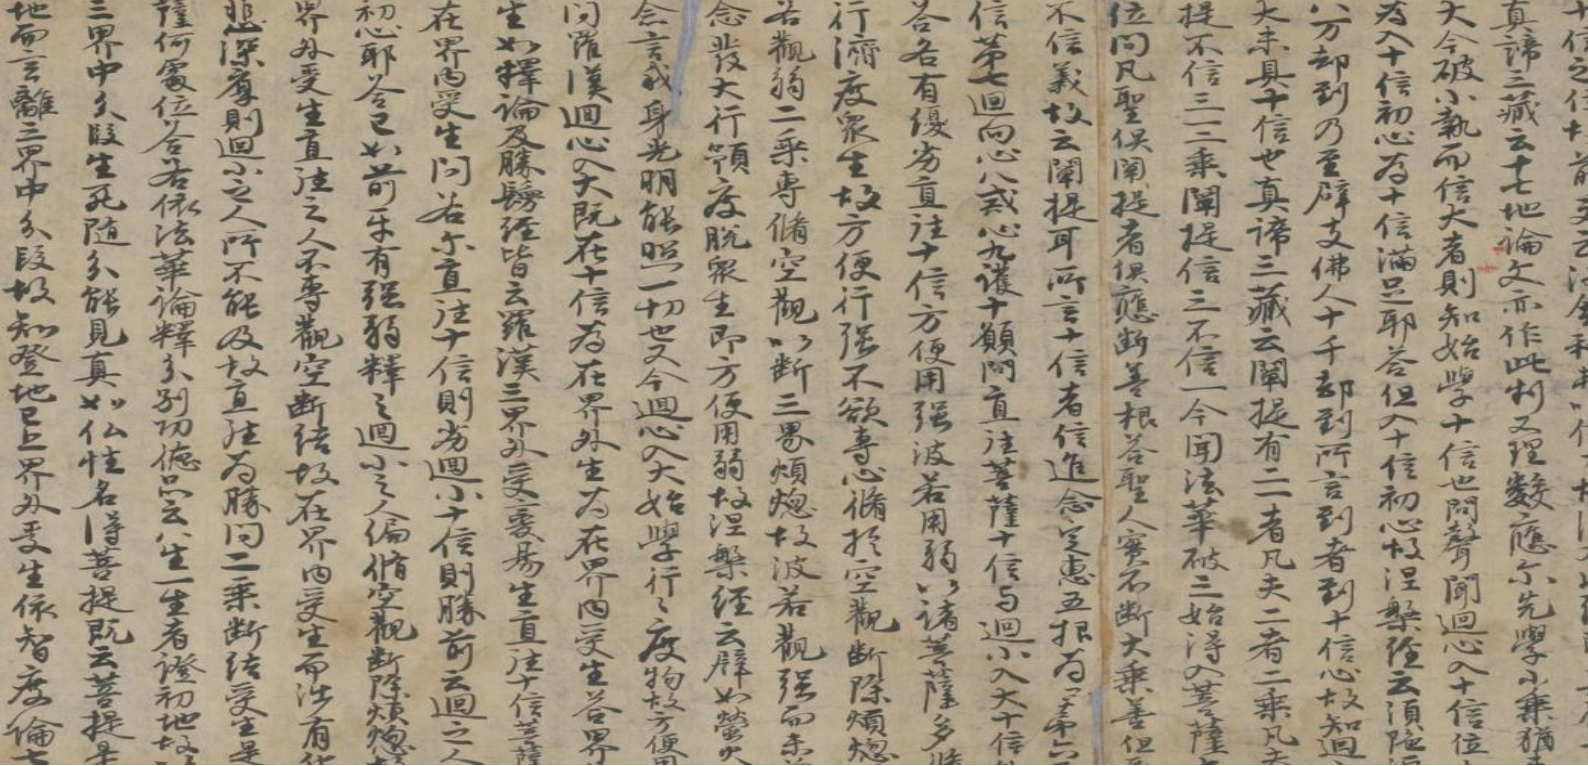 真諦三藏云十七地論文亦作此判又理數應尒先學小乘猶
大今破小執而信大者則知始學十信也問聲聞迴心入十信位
為入十信初心為十信滿足耶答但入十信初心故涅槃經云須陁洹
八万劫到乃至辟支佛人十千劫到所言到者到十信心故知迴
大未具十信也真諦三藏云闡提有二一者凡夫二者二乘凡夫
提不信三二乘闡提信三不信一今聞法華破三始得入菩薩
位問凡聖俱闡提者俱應断善根答聖人實不断大乘善但
不信義故云闡提耳所言十信者信進念定惠五根為五第六
信第七迴向心八戒心九護十願問直往菩薩十信与迴小入大十信
答各有優劣直往十信方便用强波若用弱以諸菩薩多
行濟度眾生故方便行强不欲專心脩於空觀断除煩惚
若觀弱二乘專脩空觀以断三界煩惚故波若觀强而未
念發大行願度脫眾生即方便用弱故涅槃經云辟如螢火
念言我身光明能照一切也又今迴心入大始學行々度物故方便用
問羅漢迴心入大既在十信為在界外生為在界內受生答界
生如釋論及勝鬘經皆云羅漢三界外受變易生直往十信菩薩
在界內受生問若尒直往十信則劣迴小十信則勝前云迴之人
初心耶答已如前乎有强弱釋之迴小之人偏脩空觀断除煩惚
界外受生直往之人不專觀空断結故在界內受生而涉有
悲深厚則迴小之人所不能及故直往為勝問二乘断結受生是
薩何處位答若依法華論釋分別功德品云八生一生者證初地
三界中分段生死隨分能見真如仏性名得菩提既云菩提是
地而言離三界中分段故知登地已上界外受生依智度論七